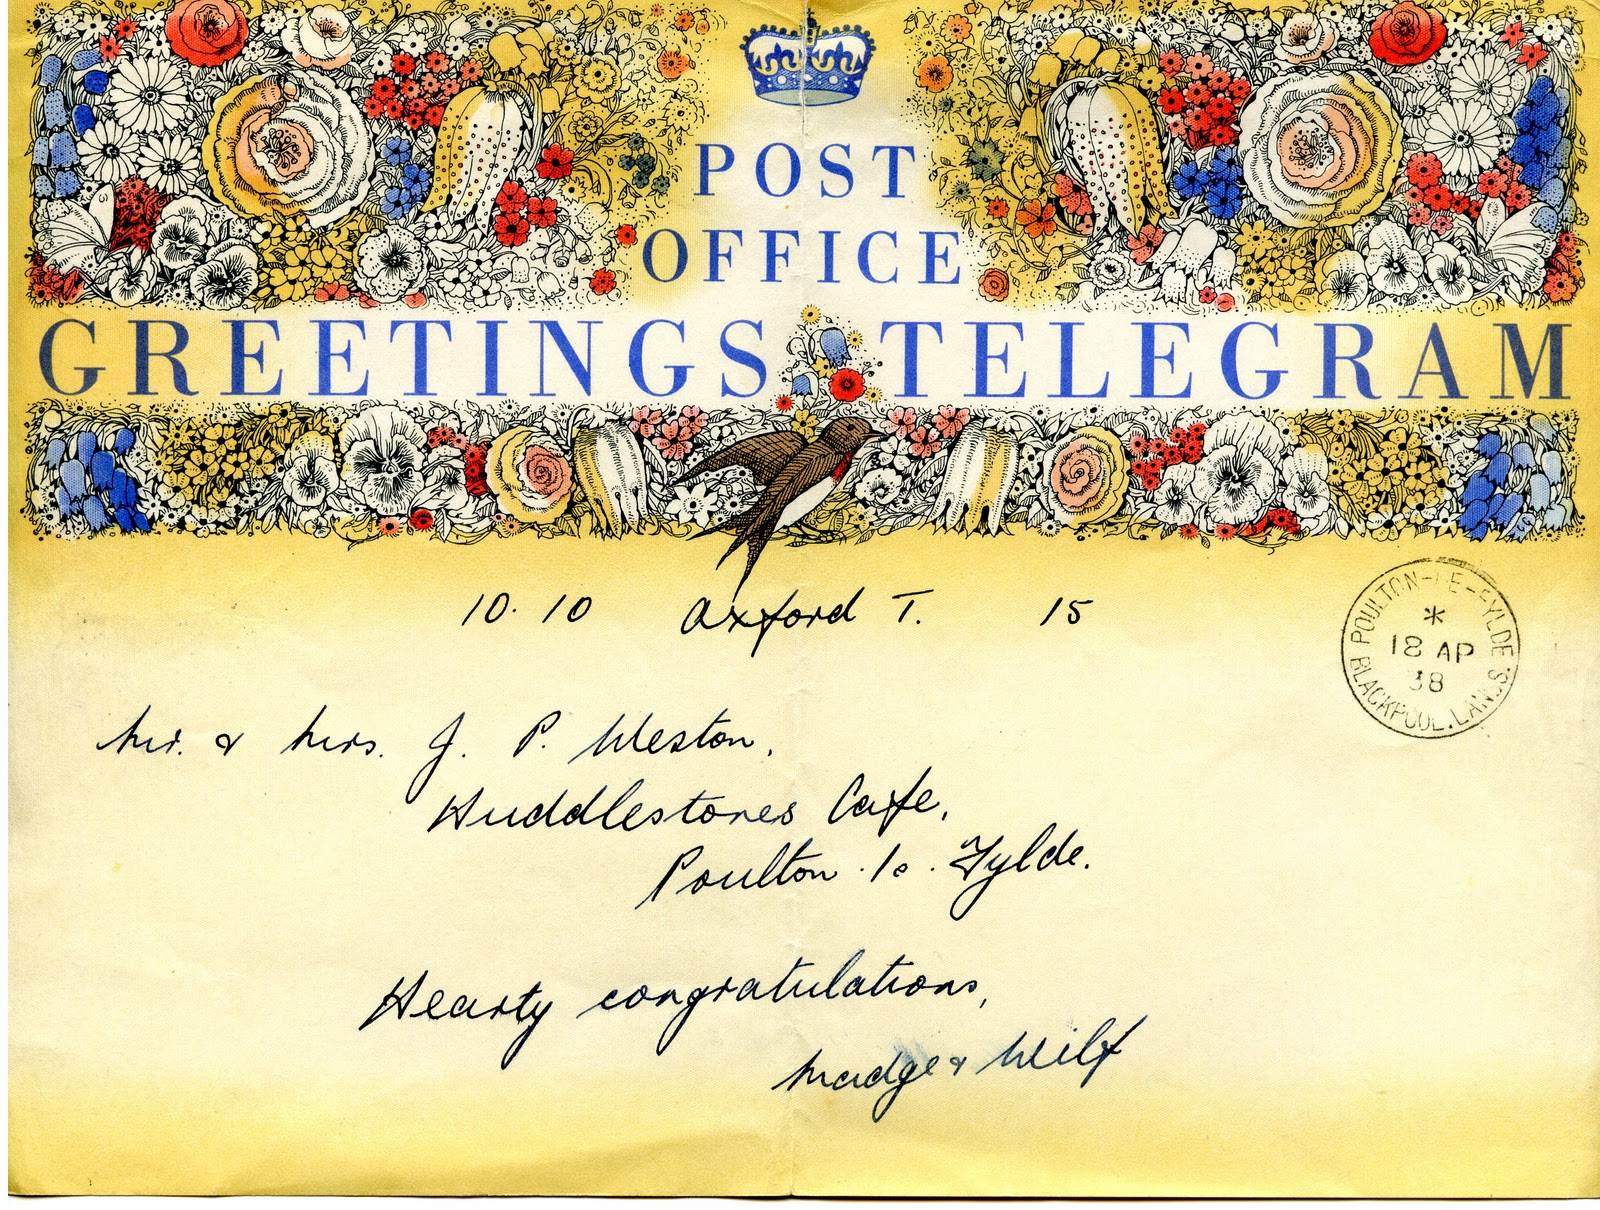 POST
OFFICE
GREETINGS TELEGRAM
10.10 Oxford T. 15
POULTON-LE-FYLDE
*
18 AP
38
BLACKPOOL. LANCS.
Mr. & Mrs. J. P. Weston,
Huddlestones Cafe,
Poulton. le. Fylde.
Hearty congratulations,
Madge & Wilf